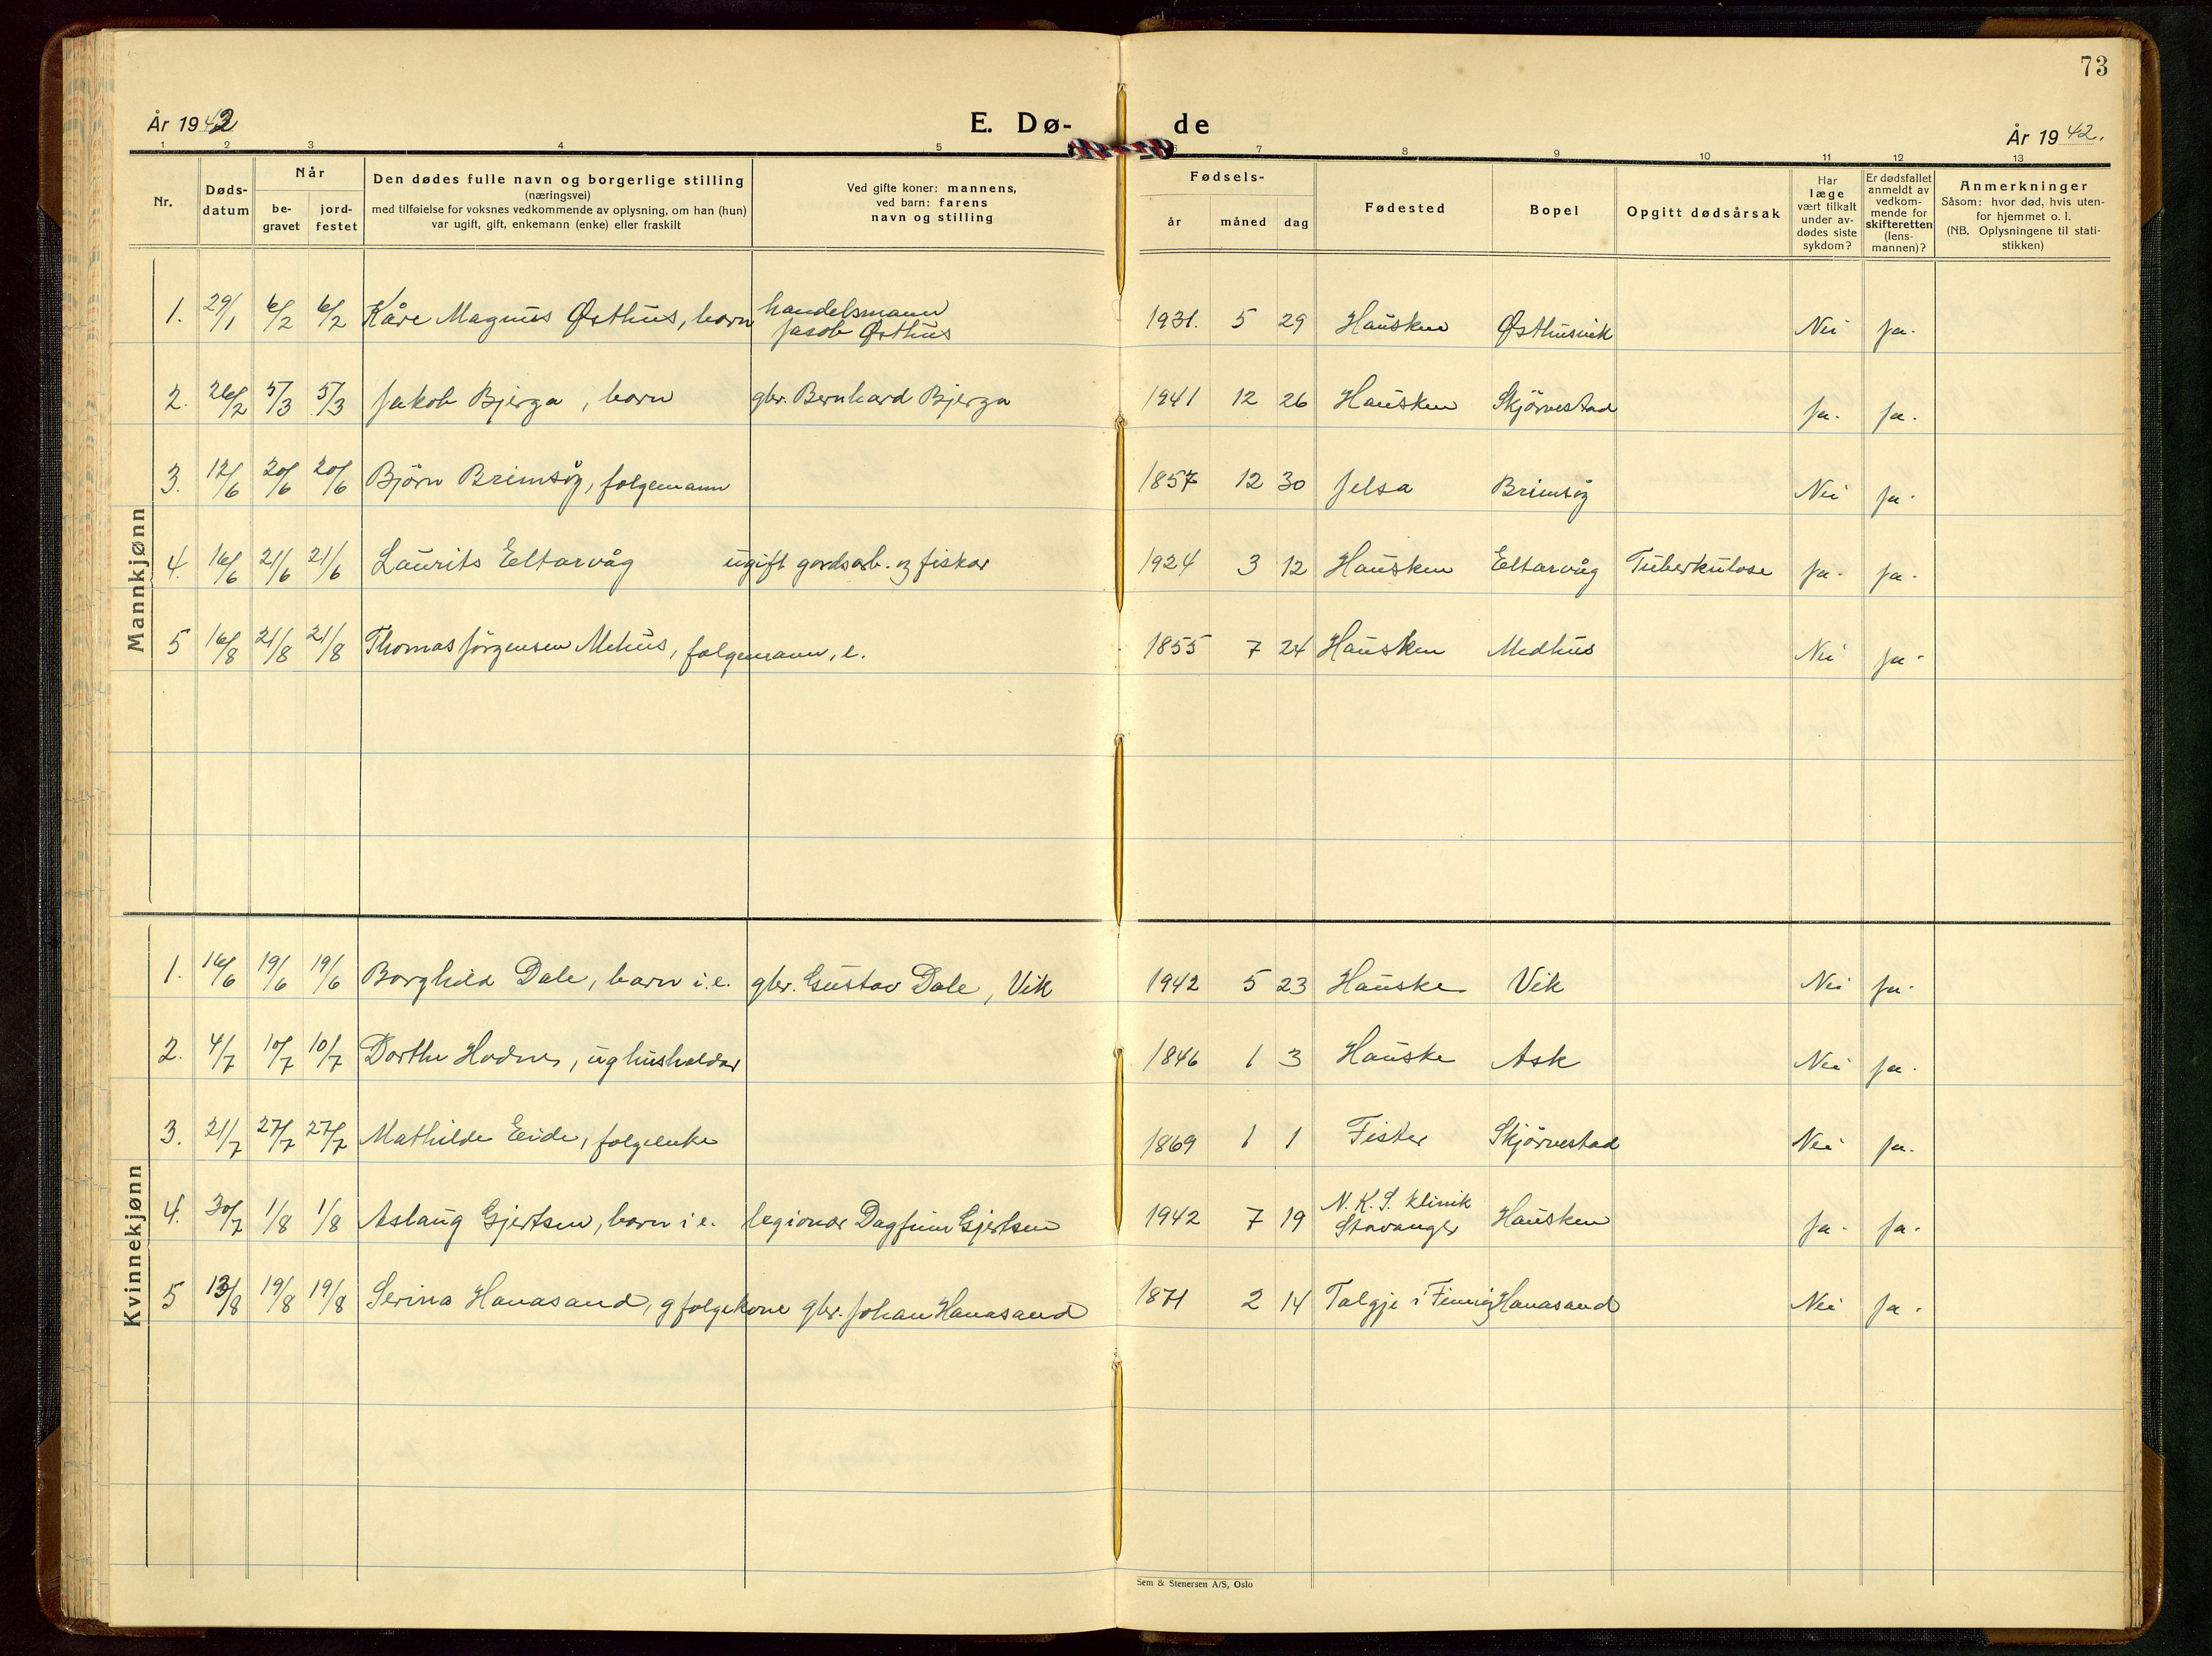 73
År 1942
E. Dø-
de
År 1942.
1 2 3 4 5 6 7 8 9 10 11 12 13
Nr.
Døds-
datum
Når
be-
gravet
jord-
festet
Den dødes fulle navn og borgerlige stilling
(næringsvei)
med tilføielse for voksnes vedkommende av oplysning, om han (hun)
var ugift, gift, enkemann (enke) eller fraskilt
Ved gifte koner: mannens,
ved barn: farens
navn og stilling
Fødsels-
år måned dag
Fødested
Bopel
Opgitt dødsårsak
Har
læge
vært tilkalt
under av-
dødes siste
sykdom?
Er dødsfallet
anmeldt av
vedkom-
mende for
skifteretten
(lens-
mannen)?
Anmerkninger
Såsom: hvor død, hvis uten-
for hjemmet o. l.
(NB. Oplysningene til stati-
stikken)
Mannkjønn
1. 29/1 6/2 6/2 Kåre Magnus Østhus, born handelsmann
Jasob Østhus 1931. 5 29 Hausken Østhusvik Nei Ja.
2. 26/2 5/3 5/3 Jakob Bjerga, born gbr. Bernhard Bjerga 1941 12 26 Hausken Skjörvestad Ja. Ja.
3. 12/6 20/6 20/6 Björn Brimsöy, folgemann 1857 12 30 Jelsa Brimsöy Nei Ja.
4. 16/6 21/6 21/6 Laurits Eltarvåg ugift gardsarb. og fiskar 1924 3 12 Hausken Eltarvåg Tuberkulose Ja. Ja.
5 16/8 21/8 21/8 Thomas Jörgensen Mehus, folgemann, e. 1855 7 24 Hausken Medhus Nei Ja.
Kvinnekjønn
1. 16/6 19/6 19/6 Borghild Dale, barn i.e. gbr. Gustav Dale, Vik 1942 5 23 Hauske Vik Nei Ja.
2. 4/7 10/7 10/7 Dorthe Hodnes, ug husholdar 1846 1 3 Hauske Ask Nei Ja.
3. 21/7 27/7 27/7 Mathilde Eide, folgeenke 1869 1 1 Fister Skjörvestad Nei Ja.
4. 30/7 1/8 1/8 Aslaug Gjertsen, born i e. legionær Dagfinn Gjertsen 1942 7 19 N.K.S. klinik
Stavanger Hausken Ja. Ja.
5 13/8 19/8 19/8 Serina Hanasand, g folgekone gbr. Johan Hanasand 1871 2 14 Talgje i Finnöy Hanasand Nei Ja.
Sem & Stenersen A/S, Oslo